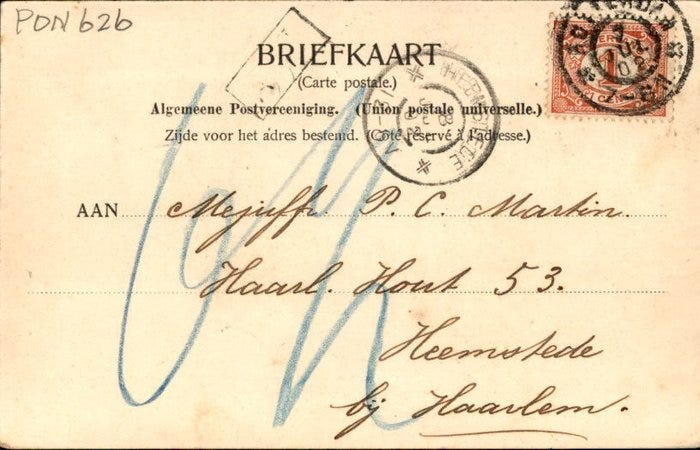 PON 626
BRIEFKAART
(Carte postale.)
Algemeene Postvereeniging. (Union postale universelle.)
Zijde voor het adres bestemd. (Côté réservé à l'adresse.)
HEEMSTEDE
AAN Mejuffr. P. C. Martin.
Haarl. Hout 53.
Heemstede
bij Haarlem.